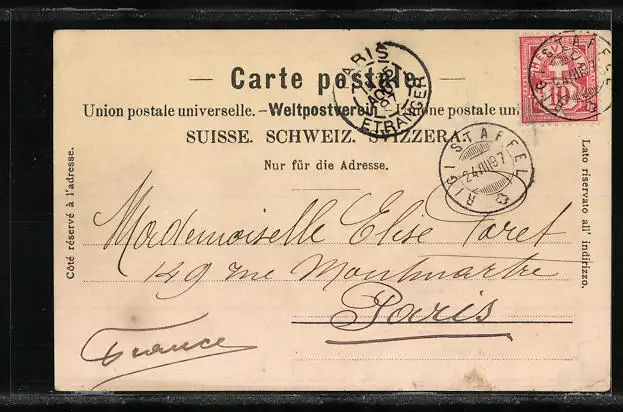 Carte postale.
Union postale universelle. — Weltpostverein. — Unione postale un
SUISSE. SCHWEIZ. SVIZZERA.
Nur für die Adresse.
Côté réservé à l'adresse.
Lato riservato all' indirizzo.
PARIS
ETRANGER
RIGI STAFFEL
RIGI STAFFEL
10
Mademoiselle Elise Poret
149 rue Montmartre
Paris
France